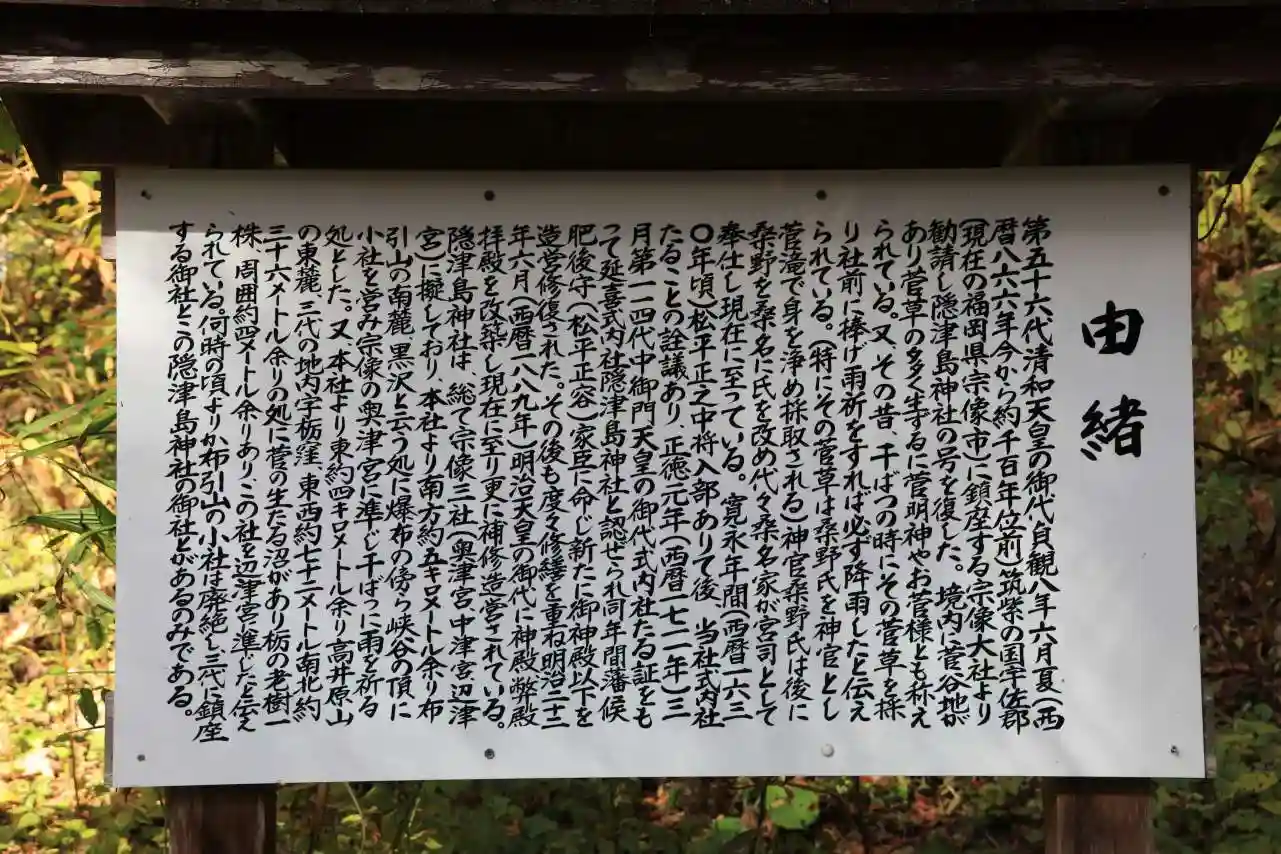 由緒
第五十六代清和天皇の御代貞観八年六月夏(西
暦八六六年今から約千百年位前)筑紫の国宇佐郡
(現在の福岡県宗像市)に鎮座する宗像大社より
勧請し隠津島神社の号を復した。境内に菅谷地が
あり菅草の多く生ずるに菅明神やお菅様とも称え
られている。又、その昔、干ばつの時にその菅草を採
り社前に捧げ雨祈をすれば必ず降雨したと伝え
られている。(特にその菅草は桑野氏を神官とし
菅滝で身を浄め採取される)神官桑野氏は後に
桑野を桑名に氏を改め代々桑名家が宮司として
奉仕し現在に至っている。寛永年間(西暦一六三
〇年頃)松平正之中将入部ありて後、当社式内社
たることの詮議あり、正徳元年(西暦一七一一年)三
月第一一四代中御門天皇の御代式内社たる証をも
って延喜式内社隠津島神社と認せられ同年間藩侯
肥後守(松平正容)家臣に命じ新たに御神殿以下を
造営修復された。その後も度々修繕を重ね明治二十二
年六月(西暦一八八九年)明治天皇の御代に神殿、弊殿
拝殿を改築し現在に至り更に補修造営されている。
隠津島神社は、総て宗像三社(奥津宮、中津宮、辺津
宮)に擬しており、本社より南方約五キロメートル余り布
引山の南麓、黒沢と云う処に爆布の傍ら峡谷の頂に
小社を営み宗像の奥津宮に準じ干ばつに雨を祈る
処とした。又、本社より東約四キロメートル余り高井原山
の東麓、三代の地内字栃窪、東西約七十二メートル南北約
三十六メートル余りの処に菅の生たる沼があり栃の老樹一
株、周囲約四メートル余りあり、この社を辺津宮に準じたと伝え
られている。何時の頃よりか布引山の小社は廃絶し三代に鎮座
する御社とこの隠津島神社の御社とがあるのみである。